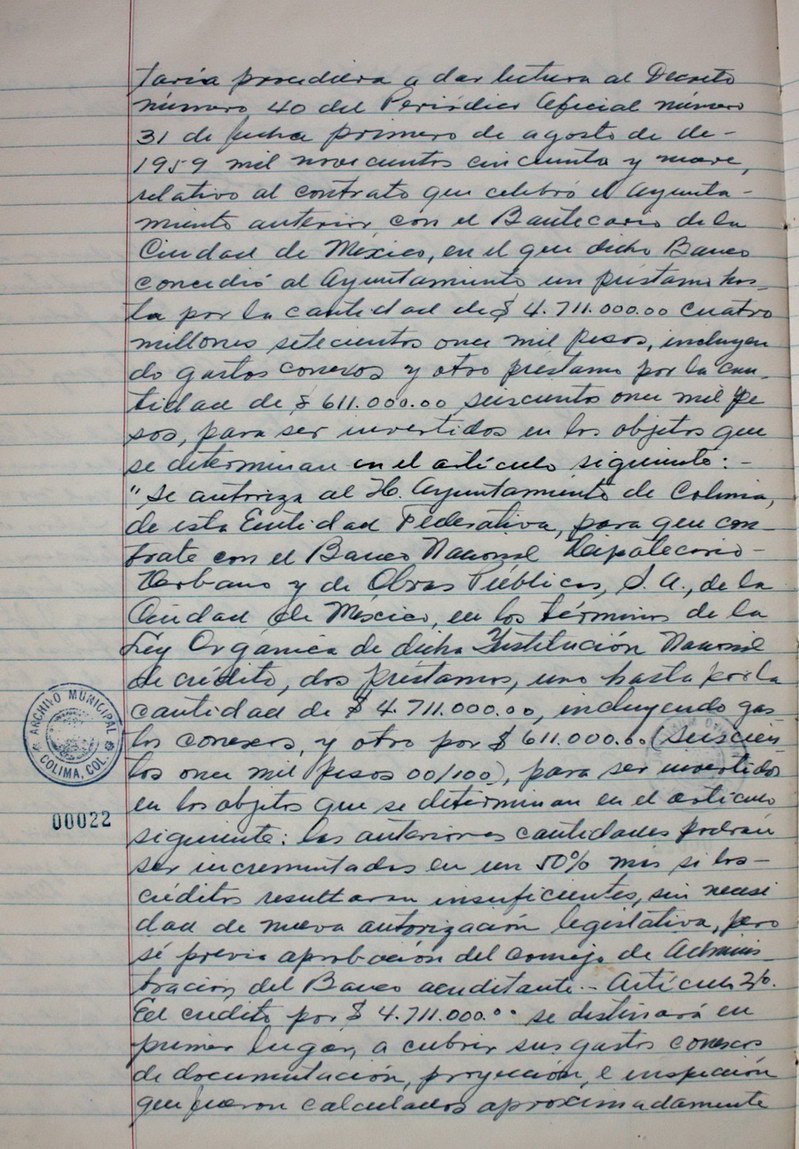 taria procediera a dar lectura al Decreto
número 40 del Periódico Oficial número
31 de fecha primero de agosto de de-
1959 mil novecientos cincuenta y nueve,
relativo al contrato que celebró el Ayunta-
miento anterior, con el Bantecario de la
Ciudad de México, en el que dicho Banco
concedió al Ayuntamiento un préstamo has-
ta por la cantidad de $ 4.711.000.00 cuatro
millones setecientos once mil pesos, incluyen
do gastos conexos y otro préstamo por la can-
tidad de $ 611.000.00 seiscientos once mil pe
sos, para ser invertidos en los objetos que
se determinan en el artículo siguiente: -
"Se autoriza al H. Ayuntamiento de Colima,
de esta Entidad Federativa, para que con-
trate con el Banco Nacional Hipotecario-
Urbano y de Obras Públicas, S. A., de la
Ciudad de México, en los términos de la
Ley Orgánica de dicha Institución Nacional
de crédito, dos préstamos, uno hasta por la
cantidad de $ 4.711.000.00, incluyendo gas
tos conexos, y otro por $ 611.000.00 (seiscien
tos once mil pesos 00/100), para ser invertidos
en los objetos que se determinan en el artículo
siguiente: las anteriores cantidades podrán
ser incrementadas en un 50% más si los-
créditos resultaran insuficientes, sin necesi
dad de nueva autorización legislativa, pero
sí previa aprobación del consejo de Adminis-
tración, del Banco acreditante.- Artículo 2/o.
El crédito por $ 4.711.000.00 se destinará en
primer lugar, a cubrir sus gastos conexos
de documentación, proyección, e inspección
que fueron calculados aproximadamente
ARCHIVO MUNICIPAL
COLIMA, COL.
00022